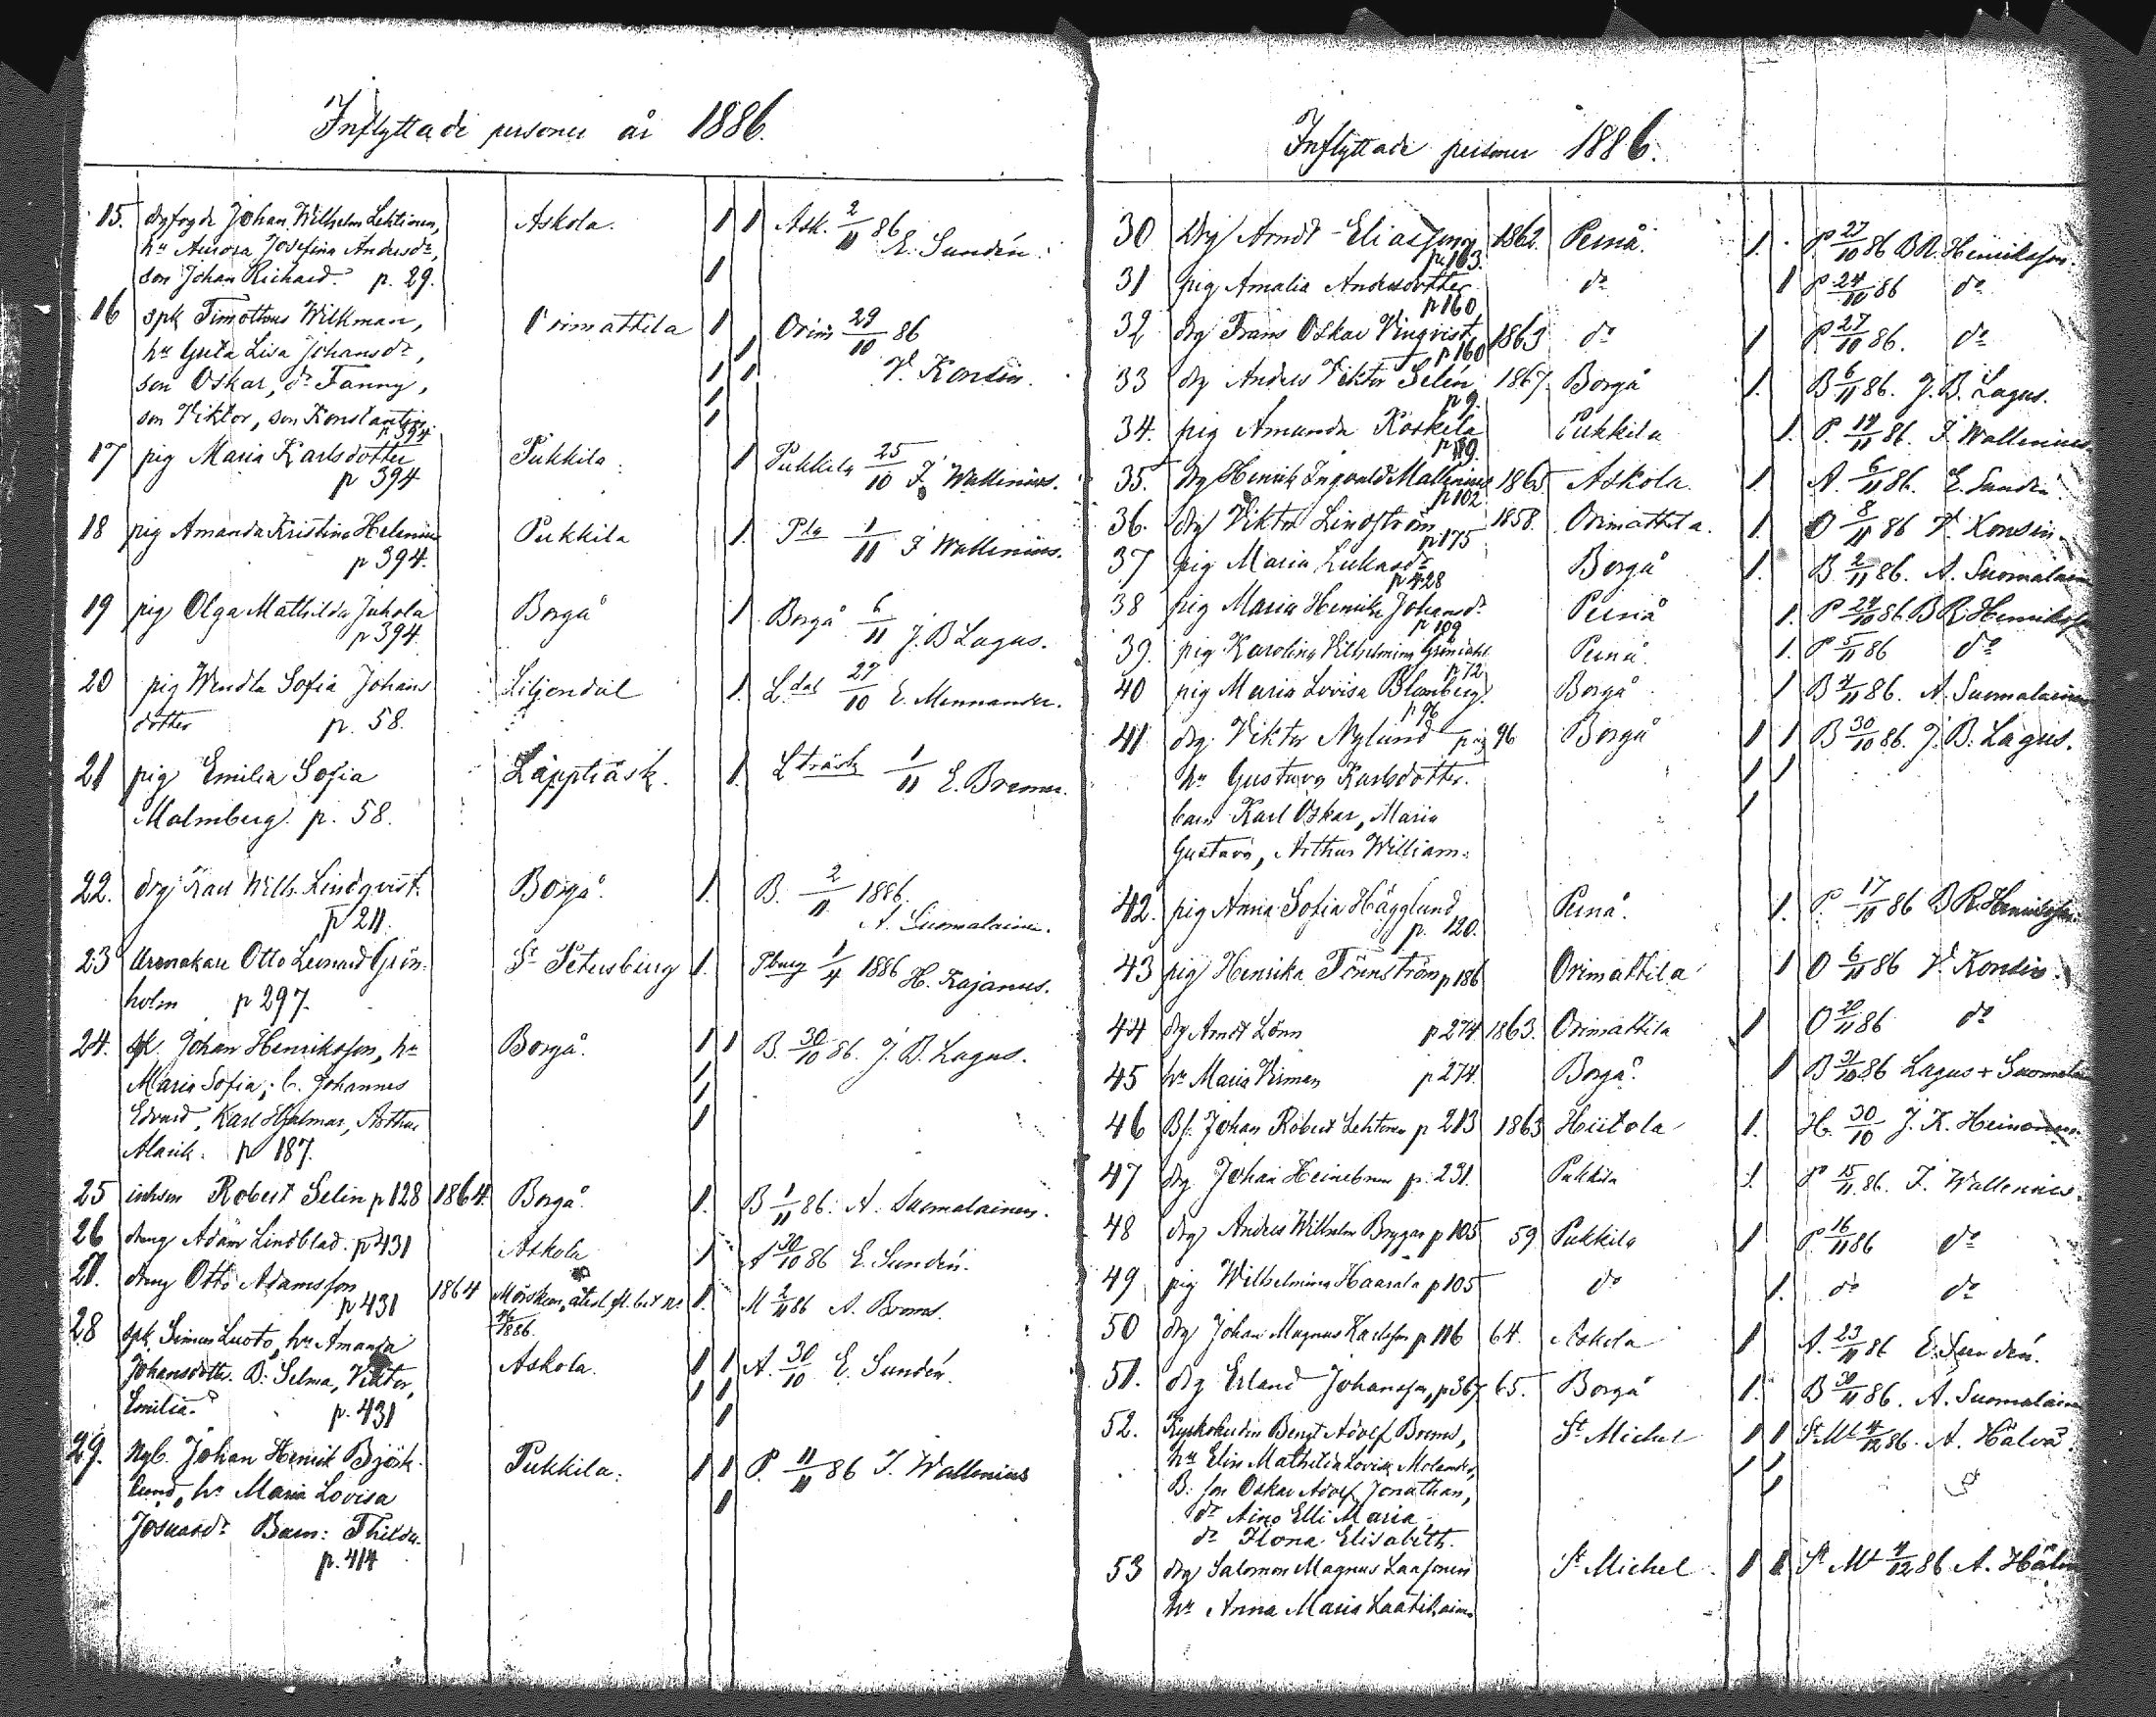 Inflyttade personer år 1886.
15. drgfogde Johan Wilhelm Lehtinen, Askola. 1 1 Ask. 2/11 86
hu Aurora Josefina Andersdr, E. Sundén.
son Johan Richard. p. 29. 1
16 spk Timotheus Wilkman, Orimattila 1 Orim 29/10 86
hu Greta Lisa Johansdr, 1 V. Konsin.
son Oskar, dr Fanny, 1 1
son Viktor, son Konstantin 1 1
p 394
17 pig Maria Karlsdotter Pukkila. 1 Pukkila 25/10 F. Wallenius.
p 394
18 pig Amanda Kristina Helenius Pukkila 1. Pla 1/11 F Wallenius.
p 394.
19 pig Olga Mathilda Juhola Borgå 1 Borgå 6/11 J. B Lagus.
p 394.
20 pig Wendla Sofia Johans Liljendal 1. L.dal 27/10 E. Mennander.
dotter p. 58.
21 pig Emilia Sofia Läppträsk. 1. Lträsk 1/11 E. Bremer.
Malmberg. p. 58.
22. drg Karl Wilh. Lindqvist. Borgå. 1. B. 2/11 1886.
p 211. A. Suomalainen.
23 Urmakare Otto Leonard Grön- St Petersburg 1. Pburg 1/4 1886 H. Kajanus.
holm p 297.
24. spk. Johan Henriksson, hu Borgå. 1 1 B. 30/10 86. J. B. Lagus.
Maria Sofia; b. Johannes 1
Edvard, Karl Hjalmar, Arthur 1
Alarik. p 187. 1
25 inhson Robert Selin p 128 1864. Borgå. 1. B 1/11 86. A. Suomalainen.
26 dreng Adam Lindblad. p 431 Askola 1 A 30/10 86 E. Sundén.
27. dreng Otto Adamsson 1864 Mörskom, 1. M 2/11 86 A. Brorns.
p 431 1886.
28 spk. Simon Luoto, hu Amanda Askola. 1 1 A. 30/10 E. Sundén.
Johansdotter. B: Selma, Viktor, 1 1
Emilia. p. 431 1
29. Ngb. Johan Henrik Björk- Pukkila. 1 1 P. 11/11 86 F. Wallenius
lund, hu Maria Lovisa 1
Josuasdr Barn: Thilda.
p. 414
Inflyttade personer 1886.
30 drg Arndt Eliasson 1862. Pernå. 1. P. 27/10 86 B R. Henriksson.
p. 163.
31 pig Amalia Andersdotter do 1 P 24/10 86 do
p 160.
32 drg Frans Oskar Vinqvist 1863 do 1 P 27/10 86. do
p 160
33 drg Anders Viktor Selén 1867 Borgå 1. B 6/11 86. J. B. Lagus.
p 9.
34. pig Amanda Koskela Pukkila 1. P. 14/11 86. F Wallenius.
35. drg Henrik Ingvald Mallenius 1865. Askola. 1. A. 6/11 86. E. Sundén
p 102
36. drg Viktor Lindström 1858. Orimattila. 1. O 8/11 86 V. Konsin.
p 175
37 pig Maria Lukasdr Borgå 1. B 2/11 86. A. Suomalainen
p 428
38 pig Maria Henrika Johansdr Pernå 1. P 24/10 86. B R. Henriksson
p 109
39. pig Karolina Wilhelmina Pernå. 1. P 5/11 86 do
p 72
40 pig Maria Lovisa Blomberg. Borgå 1 B 4/11 86. A. Suomalainen
p 96
41 drg. Viktor Nylund pag 96 Borgå 1 1 B 30/10 86. J. B. Lagus.
hu Gustava Karlsdotter. 1 1
barn Karl Oskar, Maria 1
Gustava, Arthur William.
42. pig Anna Sofia Hägglund Pernå. 1. P. 17/10 86 B R. Henriksson
p. 120.
43 pig Henrika Törnström p 186 Orimattila 1 O 6/11 86 V. Konsin.
44 drg Arndt Lönn p 274 1863. Orimattila 1 O 20/11 86 do
45 hu Maria Virman p 274. Borgå. 1 B 31/10 86 Lagus + Suomalainen
46 Bf. Johan Robert Lehtonen p 213 1863 Hiitola 1. H. 30/10 J. K. Heinonen
47 drg Johan Heinebrun p. 231. Pukkila 1. P 15/11 86. F. Wallenius.
48 drg Anders Wilhelm Bryggar p 105 59 Pukkila 1 P. 16/11 86 do
49 pig Wilhelmina Haarala p 105 do 1. do do
50 drg Johan Magnus Karlsson p 116 64. Askola 1 A. 23/11 86 E. Sundén.
51. drg Erland Johansson, p 367 65. Borgå 1. B 30/11 86. A. Suomalainen
52. Kyrkoherden Bengt Adolf Brorns, St Michel 1 1 St Ml 4/12 86. A. Hälvä.
hu Elin Mathilda Lovisa Molander, 1 1
B: son Oskar Adolf Jonathan, 1
dr Aino Elli Maria
dr Ilona Elisabeth.
53 drg Salomon Magnus Laasonen St Michel. 1 1 St Ml 4/12 86 A. Hälvä
hu Anna Maria Laatikainen